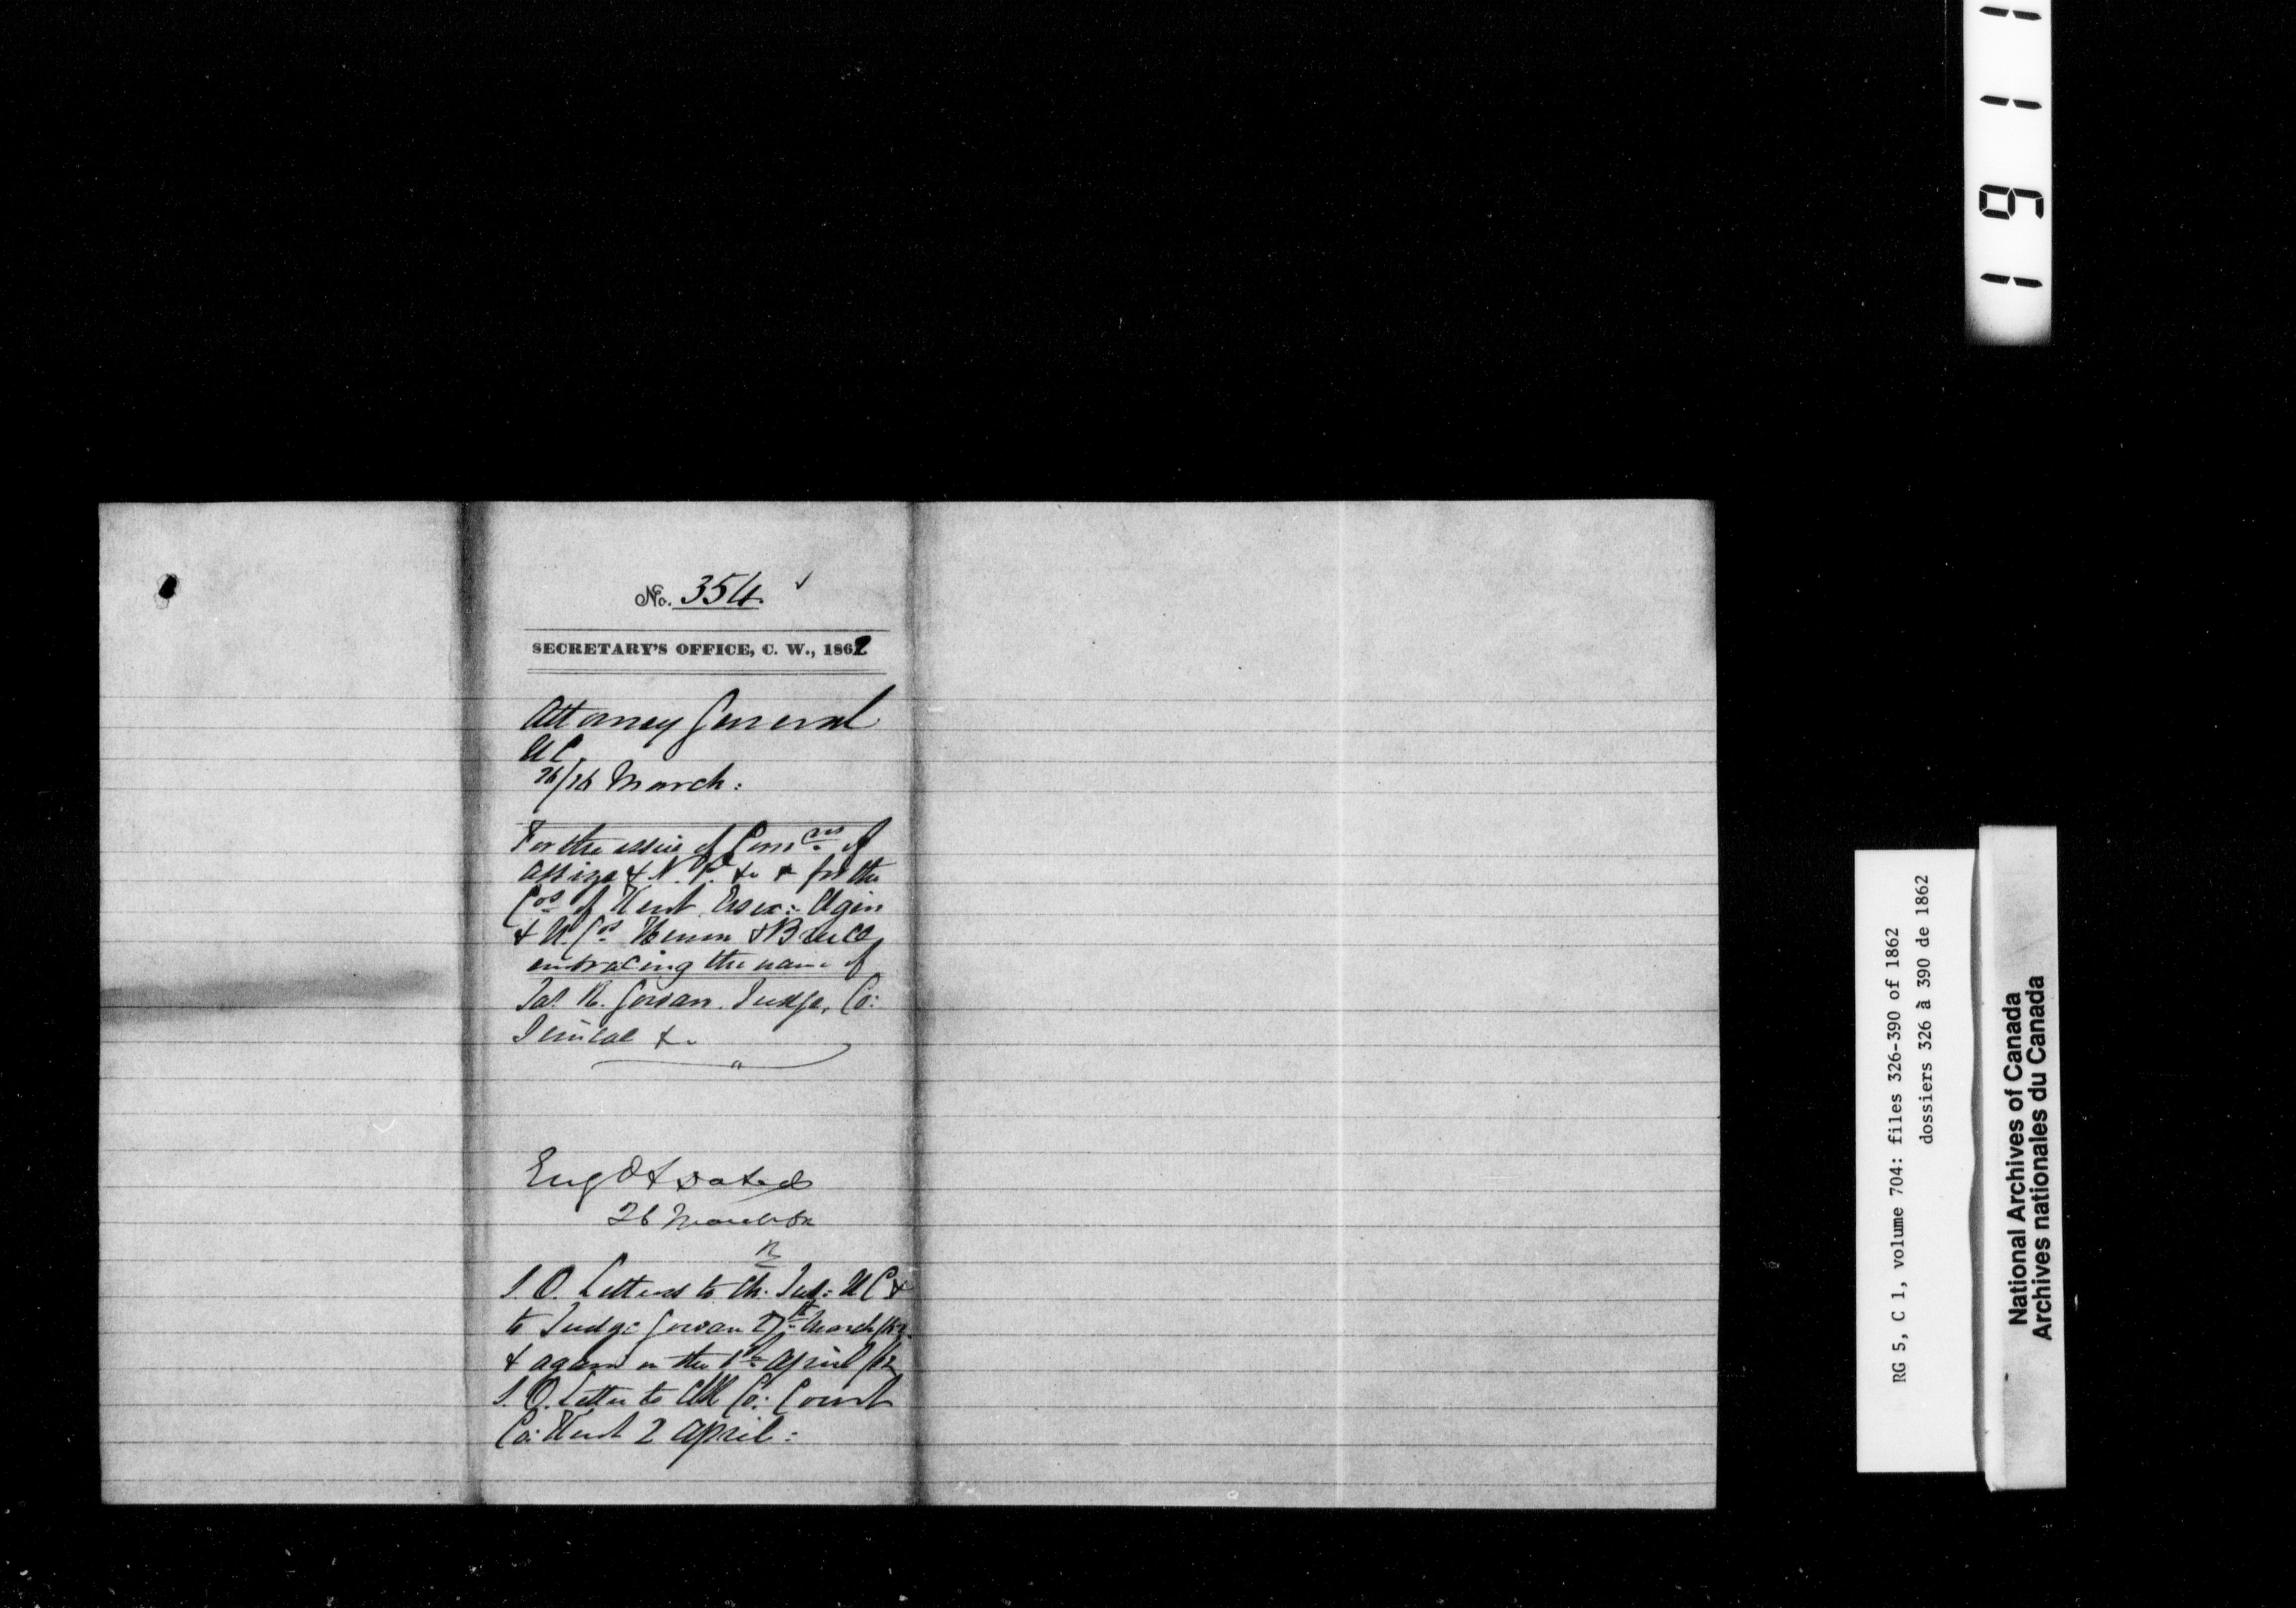 No. 354
SECRETARY'S OFFICE, C. W., 1862
Attorney General
U C.
26/26 March:
For the issue of Comns of
Assize & N. P. &c & for the
Cos of Kent Essex: Elgin
& U. Cos Huron & Bruce
embracing the name of
Jas. R. Gowan. Judge, Co:
Simcoe &c
Eng & dated
26 March
S. O. Letters to Ch. Jus: U C &
to Judge Gowan 27th March /62
& again on the 1st April /62
S. O. Letter to Clk Co: Court
Co: Kent 2 April:
1 9 1 1
RG 5, C 1, volume 704: files 326-390 of 1862
dossiers 326 à 390 de 1862
National Archives of Canada
Archives nationales du Canada